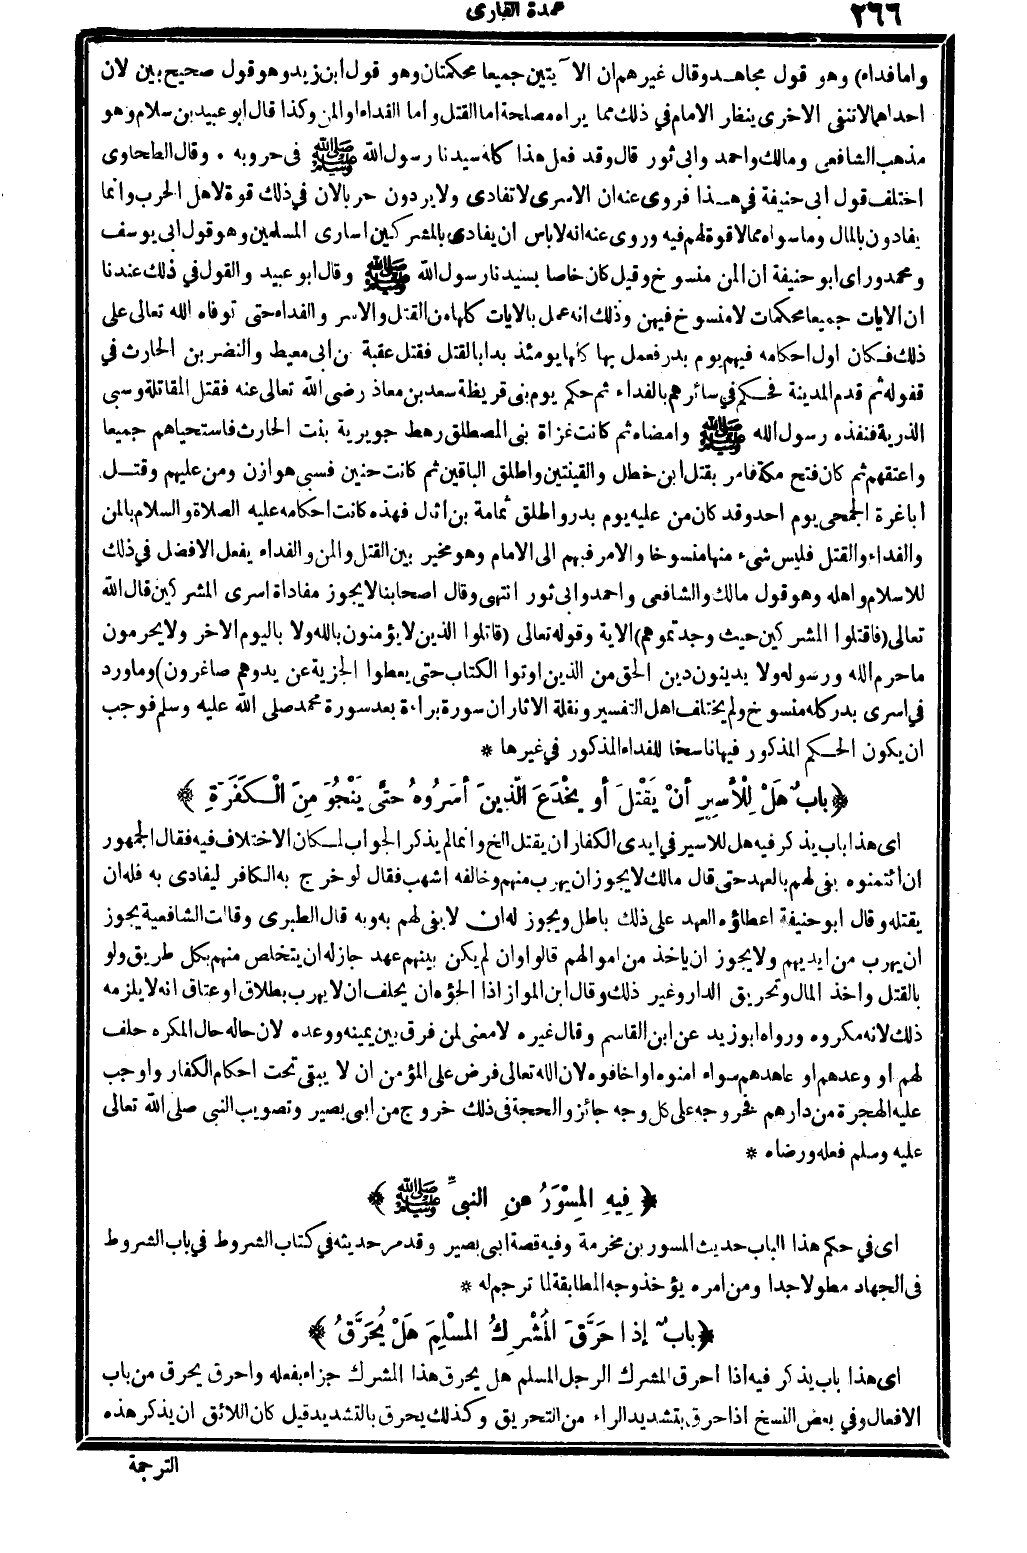 ٢٦٦
عمدة القارى
واما فداء) وهو قول مجاهد وقال غيرهم ان الآيتين جميعا محكمتان وهو قول ابن زيد وهو قول صحيح بين لان
احداهما لا تنفى الاخرى ينظر الامام في ذلك مما يراه مصلحة اما القتل واما الفداء او المن وكذا قال ابو عبيد بن سلام وهو
مذهب الشافعى ومالك واحمد وابى ثور قال وقد فعل هذا كله سيدنا رسول الله ﷺ فى حروبه . وقال الطحاوى
اختلف قول ابى حنيفة في هذا فروى عنه ان الاسرى لا تفادى ولا يردون حربا لان في ذلك قوة لاهل الحرب وانما
يفادون بالمال وما سواه مما لا قوة لهم فيه وروى عنه انه لا باس ان يفادى بالمشركين اسارى المسلمين وهو قول ابى يوسف
ومحمد وراى ابو حنيفة ان المن منسوخ وقيل كان خاصا بسيدنا رسول الله ﷺ وقال ابو عبيد والقول في ذلك عندنا
ان الايات جميعا محكمات لا منسوخ فيهن وذلك انه عمل بالايات كلها من القتل والاسر والفداء حتى توفاه الله تعالى على
ذلك فكان اول احكامه فيهم يوم بدر فعمل بها كلها يومئذ بدا بالقتل فقتل عقبة بن ابى معيط والنضر بن الحارث في
قفوله ثم قدم المدينة فحكم في سائرهم بالفداء ثم حكم يوم بنى قريظة سعد بن معاذ رضى الله تعالى عنه فقتل المقاتلة وسبى
الذرية فنفذه رسول الله ﷺ وامضاه ثم كانت غزاة بنى المصطلق رهط جويرية بنت الحارث فاستحياهم جميعا
واعتقهم ثم كان فتح مكة فامر بقتل ابن خطل والقينتين واطلق الباقين ثم كانت حنين فسبى هوازن ومن عليهم وقتل
اباغرة الجمحى يوم احد وقد كان من عليه يوم بدر واطلق ثمامة بن اثال فهذه كانت احكامه عليه الصلاة والسلام بالمن
والفداء والقتل فليس شىء منها منسوخا والامر فيهم الى الامام وهو مخير بين القتل والمن والفداء يفعل الافضل في ذلك
للاسلام واهله وهو قول مالك والشافعى واحمد وابى ثور انتهى وقال اصحابنا لا يجوز مفاداة اسرى المشركين قال الله
تعالى (فاقتلوا المشركين حيث وجدتموهم) الاية وقوله تعالى (قاتلوا الذين لا يؤمنون بالله ولا باليوم الاخر ولا يحرمون
ما حرم الله ورسوله ولا يدينون دين الحق من الذين اوتوا الكتاب حتى يعطوا الجزية عن يد وهم صاغرون) وما ورد
في اسرى بدر كله منسوخ ولم يختلف اهل التفسير ونقلة الاثار ان سورة براءة بعد سورة محمد صلى الله عليه وسلم فوجب
ان يكون الحكم المذكور فيها ناسخا للفداء المذكور في غيرها *
﴿ بابٌ هَلْ لِلْأَسِيرِ أَنْ يَقْتُلَ أو يَخْدَعَ الَّذِينَ أسَرُوهُ حتَّى يَنْجُوَ مِنَ الْكَفَرَةِ ﴾
اى هذا باب يذكر فيه هل للاسير في ايدى الكفار ان يقتل الخ وانما لم يذكر الجواب لمكان الاختلاف فيه فقال الجمهور
ان ائتمنوه بفى لهم بالعهد حتى قال مالك لا يجوز ان يهرب منهم وخالفه اشهب فقال لو خرج به الكافر ليفادى به فله ان
يقتله وقال ابو حنيفة اعطاؤه العهد على ذلك باطل ويجوز له ان لا يفى لهم به وبه قال الطبرى وقالت الشافعية يجوز
ان يهرب من ايديهم ولا يجوز ان ياخذ من اموالهم قالوا وان لم يكن بينهم عهد جاز له ان يتخلص منهم بكل طريق ولو
بالقتل واخذ المال وتحريق الدار وغير ذلك وقال ابن المواز اذا الجؤه ان يحلف ان لا يهرب بطلاق او عتاق انه لا يلزمه
ذلك لانه مكروه ورواه ابو زيد عن ابن القاسم وقال غيره لا معنى لمن فرق بين يمينه ووعده لان حاله حال المكره حلف
لهم او وعدهم او عاهدهم سواء امنوه او اخافوه لان الله تعالى فرض على المؤمن ان لا يبقى تحت احكام الكفار واوجب
عليه الهجرة من دارهم فخروجه على كل وجه جائز والحجة فى ذلك خروج من ابى بصير وتصويب النبى صلى الله تعالى
عليه وسلم فعله ورضاه *
﴿ فِيهِ المِسْوَرُ عنِ النبىِّ ﷺ ﴾
اى في حكم هذا الباب حديث المسور بن مخرمة وفيه قصة ابى بصير وقد مر حديثه في كتاب الشروط في باب الشروط
فى الجهاد مطولا جدا ومن امره يؤخذ وجه المطابقة لما ترجم له *
﴿ بابٌ إذا حَرَّقَ المُشْرِكُ المسْلِمَ هَلْ يُحَرَّقُ ﴾
اى هذا باب يذكر فيه اذا احرق المشرك الرجل المسلم هل يحرق هذا المشرك جزاء بفعله واحرق يحرق من باب
الافعال وفي بعض النسخ اذا حرق بتشديد الراء من التحريق وكذلك يحرق بالتشديد قيل كان اللائق ان يذكر هذه
الترجمة